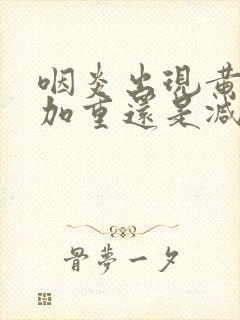 咽炎出現黃
加重還是減
骨夢一夕